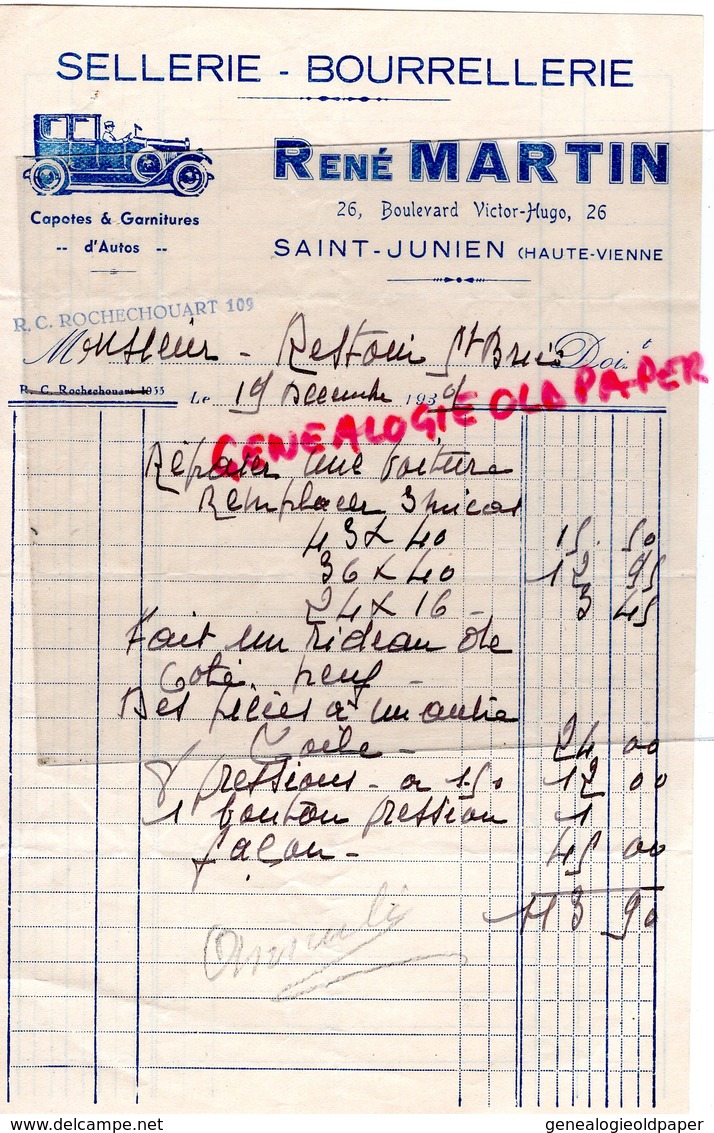 SELLERIE - BOURRELLERIE
RENÉ MARTIN
26, Boulevard Victor-Hugo, 26
SAINT-JUNIEN (HAUTE-VIENNE
Capotes & Garnitures
-- d'Autos --
R. C. ROCHECHOUART 109
Monsieur - Restoin St Brice Doit
R. C. Rochechouart 1055
Le 19 Decembre 1939
GENEALOGIE OLD PAPER
Réparer une voiture
Remplacer 3 micas
43 x 40 15. 50
36 x 40 12 95
24 x 16 - 3 45
Fait un rideau de
Coté neuf -
Des pièces à un autre
Toile - 24 00
8 pressions - a 1.50 12 00
1 bouton pression 1
façon - 45 00
113 90
delcampe.net
genealogieoldpaper